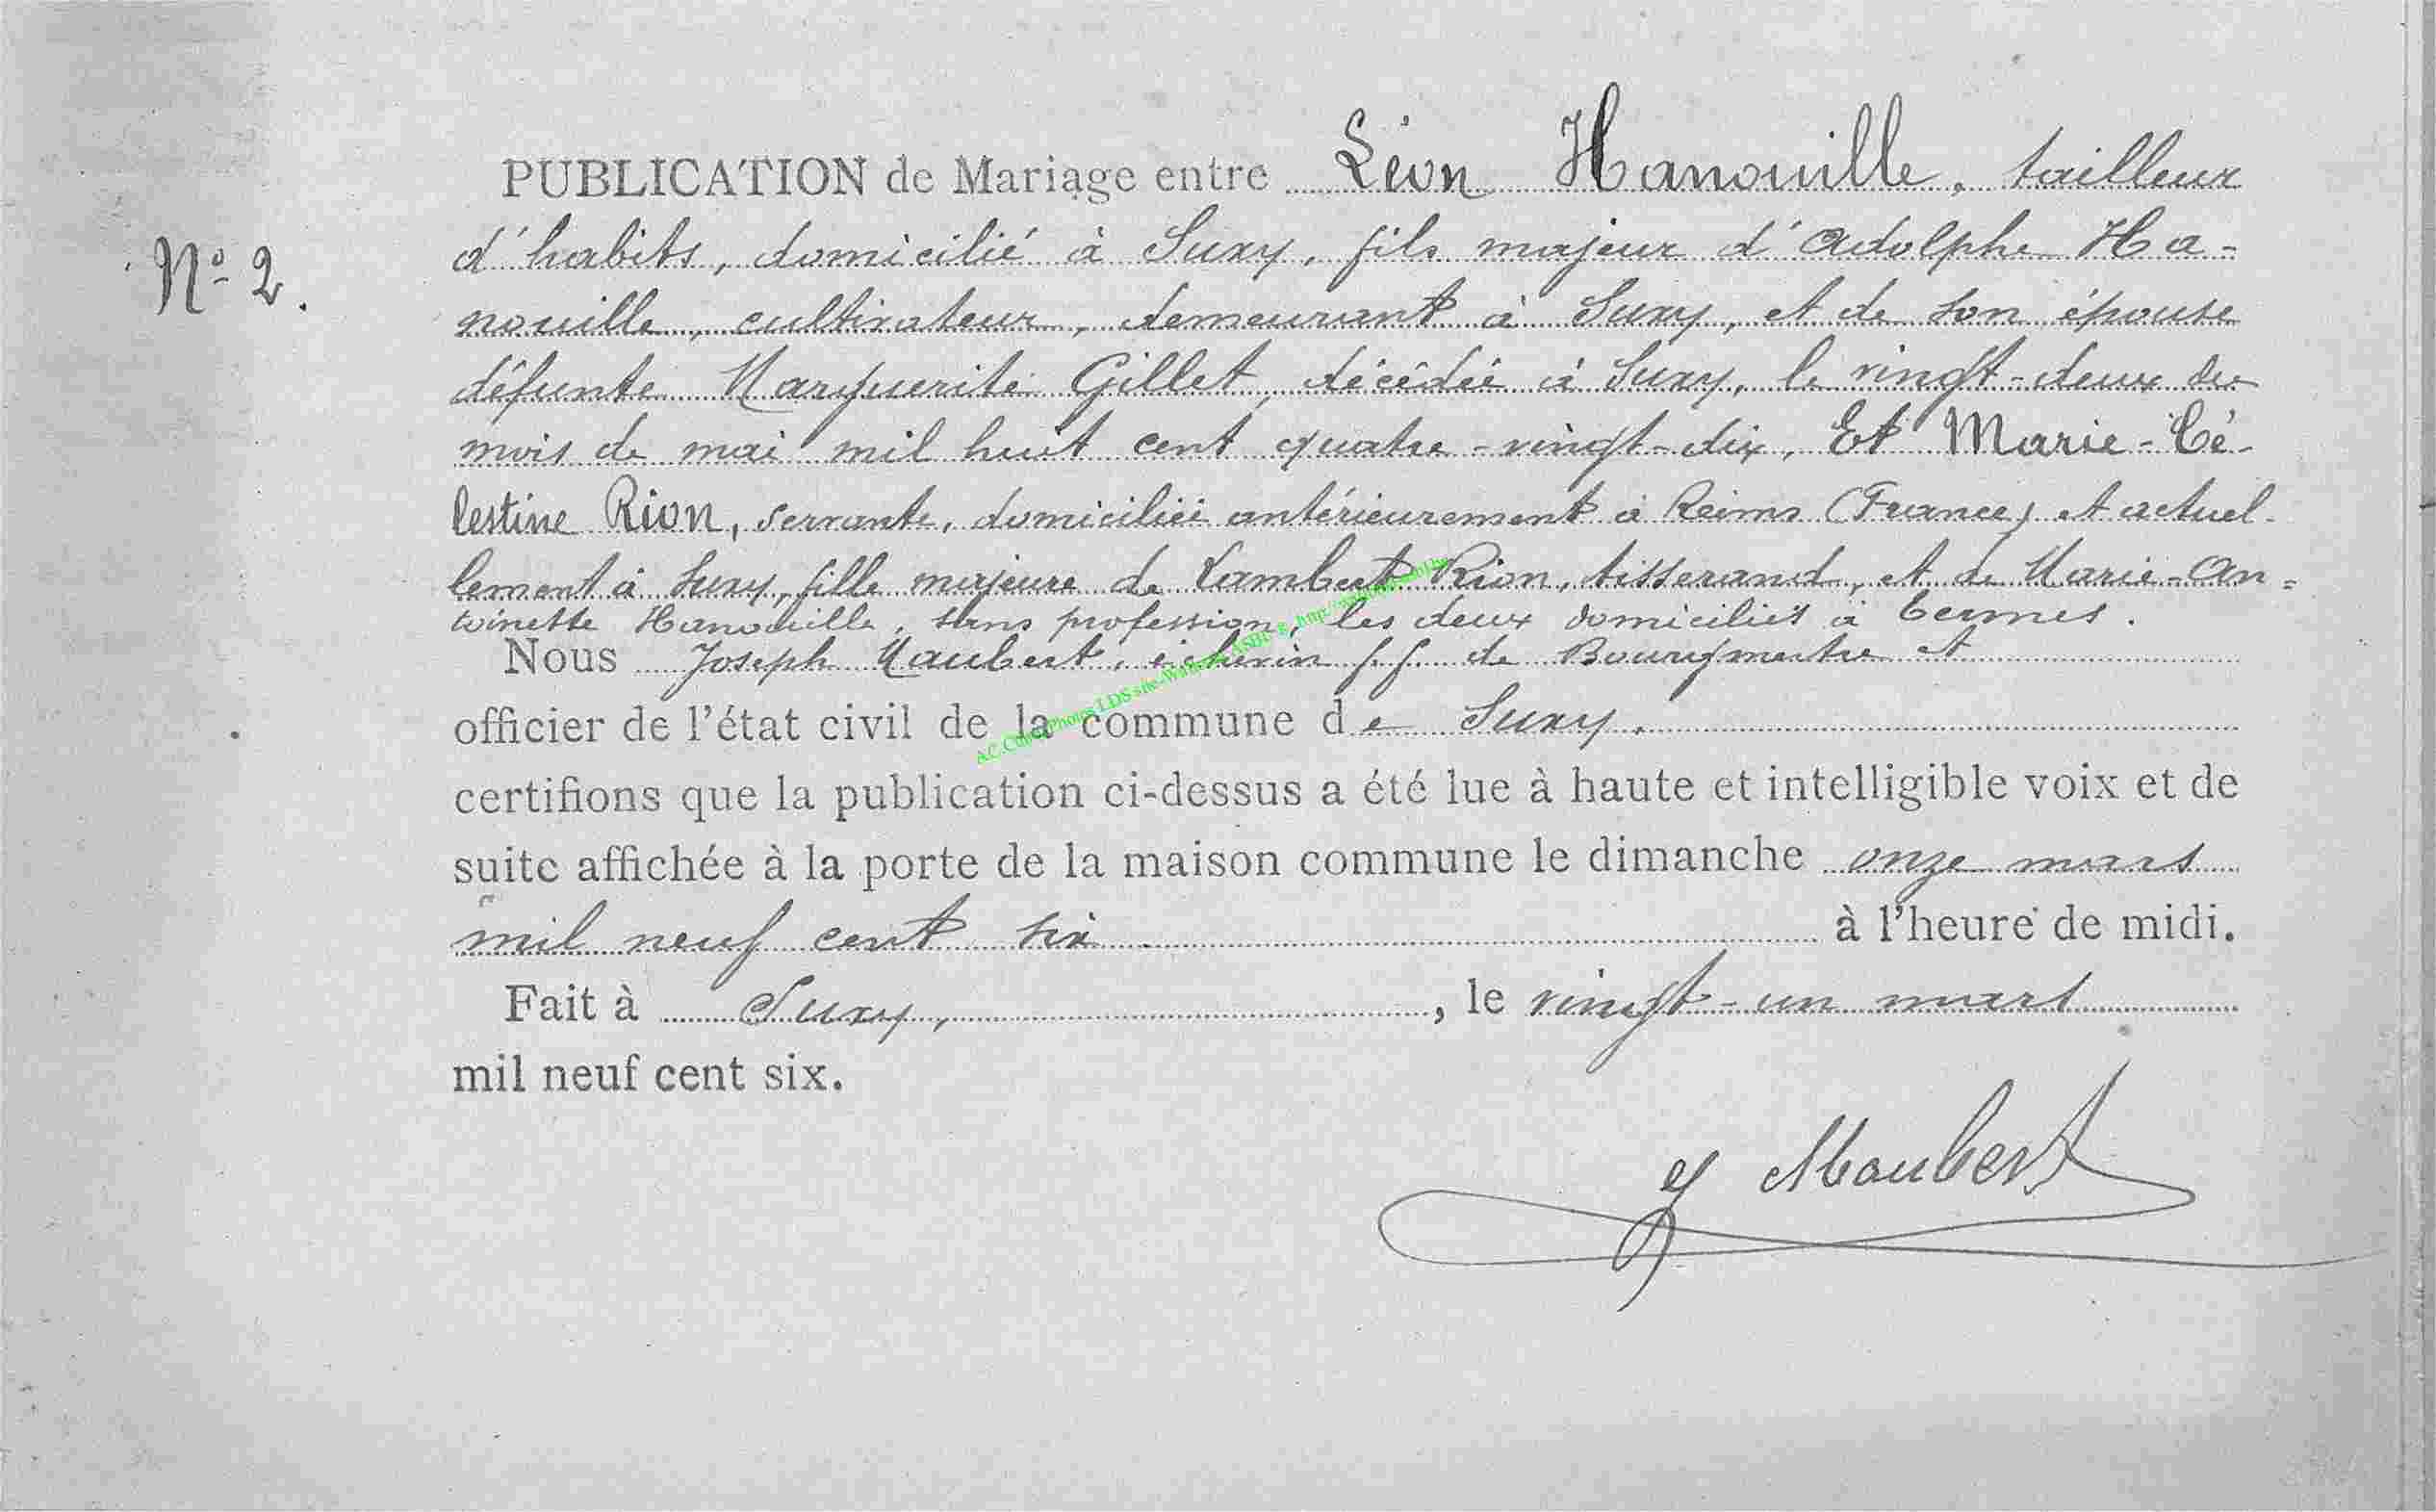 PUBLICATION de Mariage entre Léon Hanouille, tailleur
d'habits, domicilié à Suxy, fils majeur d'Adolphe Ha-
N° 2.
nouille, cultivateur, demeurant à Suxy, et de son épouse
défunte Marguerite Gillet, décédée à Suxy, le vingt-deux du
mois de mai mil huit cent quatre-vingt-dix, Et Marie-Cé-
lestine Rion, servante, domiciliée antérieurement à Reims (France) et actuel-
lement à Suxy, fille majeure de Lambert Rion, tisserand, et de Marie-An-
toinette Hanouille, sans profession, les deux domiciliés à Termes.
Nous Joseph Maubert, échevin f.f. de Bourgmestre et
officier de l'état civil de la commune de Suxy.
certifions que la publication ci-dessus a été lue à haute et intelligible voix et de
suite affichée à la porte de la maison commune le dimanche onze mars
mil neuf cent six à l'heure de midi.
Fait à Suxy, , le vingt-un mars
mil neuf cent six.
J Maubert